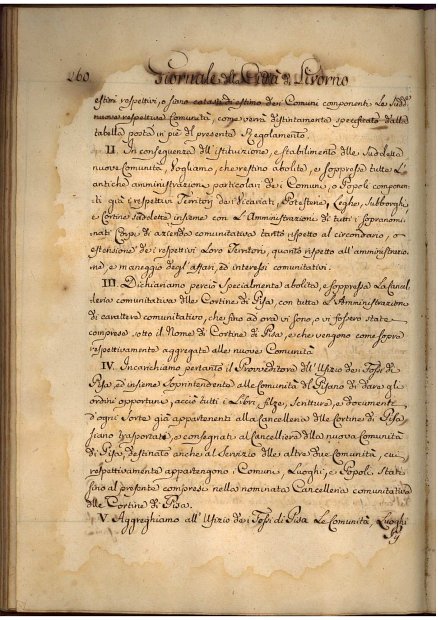 260. Giornale della Città di Livorno
estimi respettivi, o siano catasti di estimo dei Comuni componenti le sudde
nuove respettive Comunità, come verrà distintamente specificato dalla
tabella posta in piè del presente Regolamento.
II. In conseguenza dell'istituzione, e stabilimento delle suddette
nuove Comunità, Vogliamo, che restino abolite, e soppresse tutte le
antiche amministrazioni particolari dei Comuni, o Popoli componen-
ti già i respettivi Territorj dei Vicariati, Potesterie, Leghe, Subborghi
e Cortine suddette insieme con l'Amministrazioni di tutti i soprannomi-
nati Corpi di azienda comunitativa tanto rispetto al circondario, o
estensione dei respettivi loro Territori, quanto rispetto all'amministrazio-
ne, e maneggio degl'affari, ed interessi comunitativi.
III. Dichiariamo perciò specialmente abolita, e soppressa la Cancel-
leria comunitativa delle Cortine di Pisa, con tutte le Amministrazioni
di carattere comunitativo, che fino ad ora vi sono, o vi fossero state
comprese sotto il Nome di Cortine di Pisa, e che vengono come sopra
respettivamente aggregate alle nuove Comunità
IV. Incarichiamo pertanto il Provveditore dell'Ufizio dei Fossi di
Pisa, ed insieme Soprintendente alle Comunità del Pisano di dare gli
ordini opportuni, acciò tutti i Libri, filze, Scritture, e documenti
d'ogni sorte già appartenenti alla Cancelleria delle Cortine di Pisa
siano trasportati, e consegnati al Cancelliere della nuova Comunità
di Pisa, destinato anche al servizio delle altre due Comunità, cui
respettivamente appartengono i Comuni, Luoghi, e Popoli stati
fino al presente compresi nella nominata Cancelleria comunitativa
delle Cortine di Pisa.
V. Aggreghiamo all'Ufizio dei Fossi di Pisa le Comunità, Luoghi